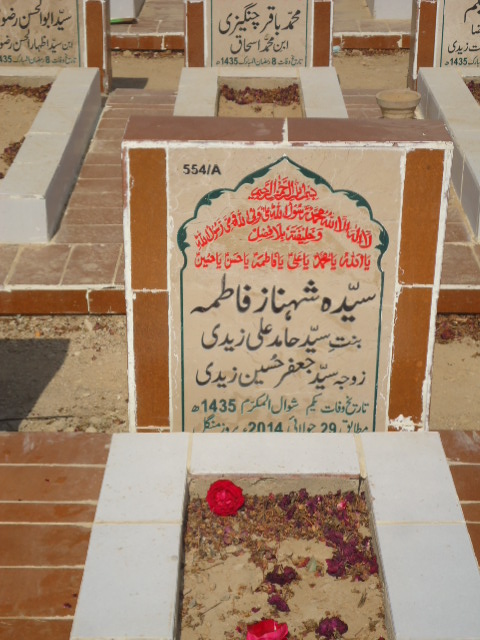 سیّد ابوالحسن رضوی
ابن سیّد اظہار الحسن رضوی
1435ھ
محمّد باقر چنگیزی
ابن محمّد اسحاق
8 رمضان المبارک 1435ھ
1435ھ
554/A
بسم اللہ الرحمٰن الرحیم
لا الہ الا اللہ محمد رسول اللہ علی ولی اللہ وصی رسول اللہ
و خلیفتہ بلا فصل
یا اللہ یا محمد یا علی یا فاطمہ یا حسن یا حسین
سیّدہ شہناز فاطمہ
بنتِ سیّد حامد علی زیدی
زوجہ سیّد جعفر حُسین زیدی
تاریخ وفات یکم شوال المکرّم 1435ھ
مطابق 29 جولائی 2014ء بروز منگل